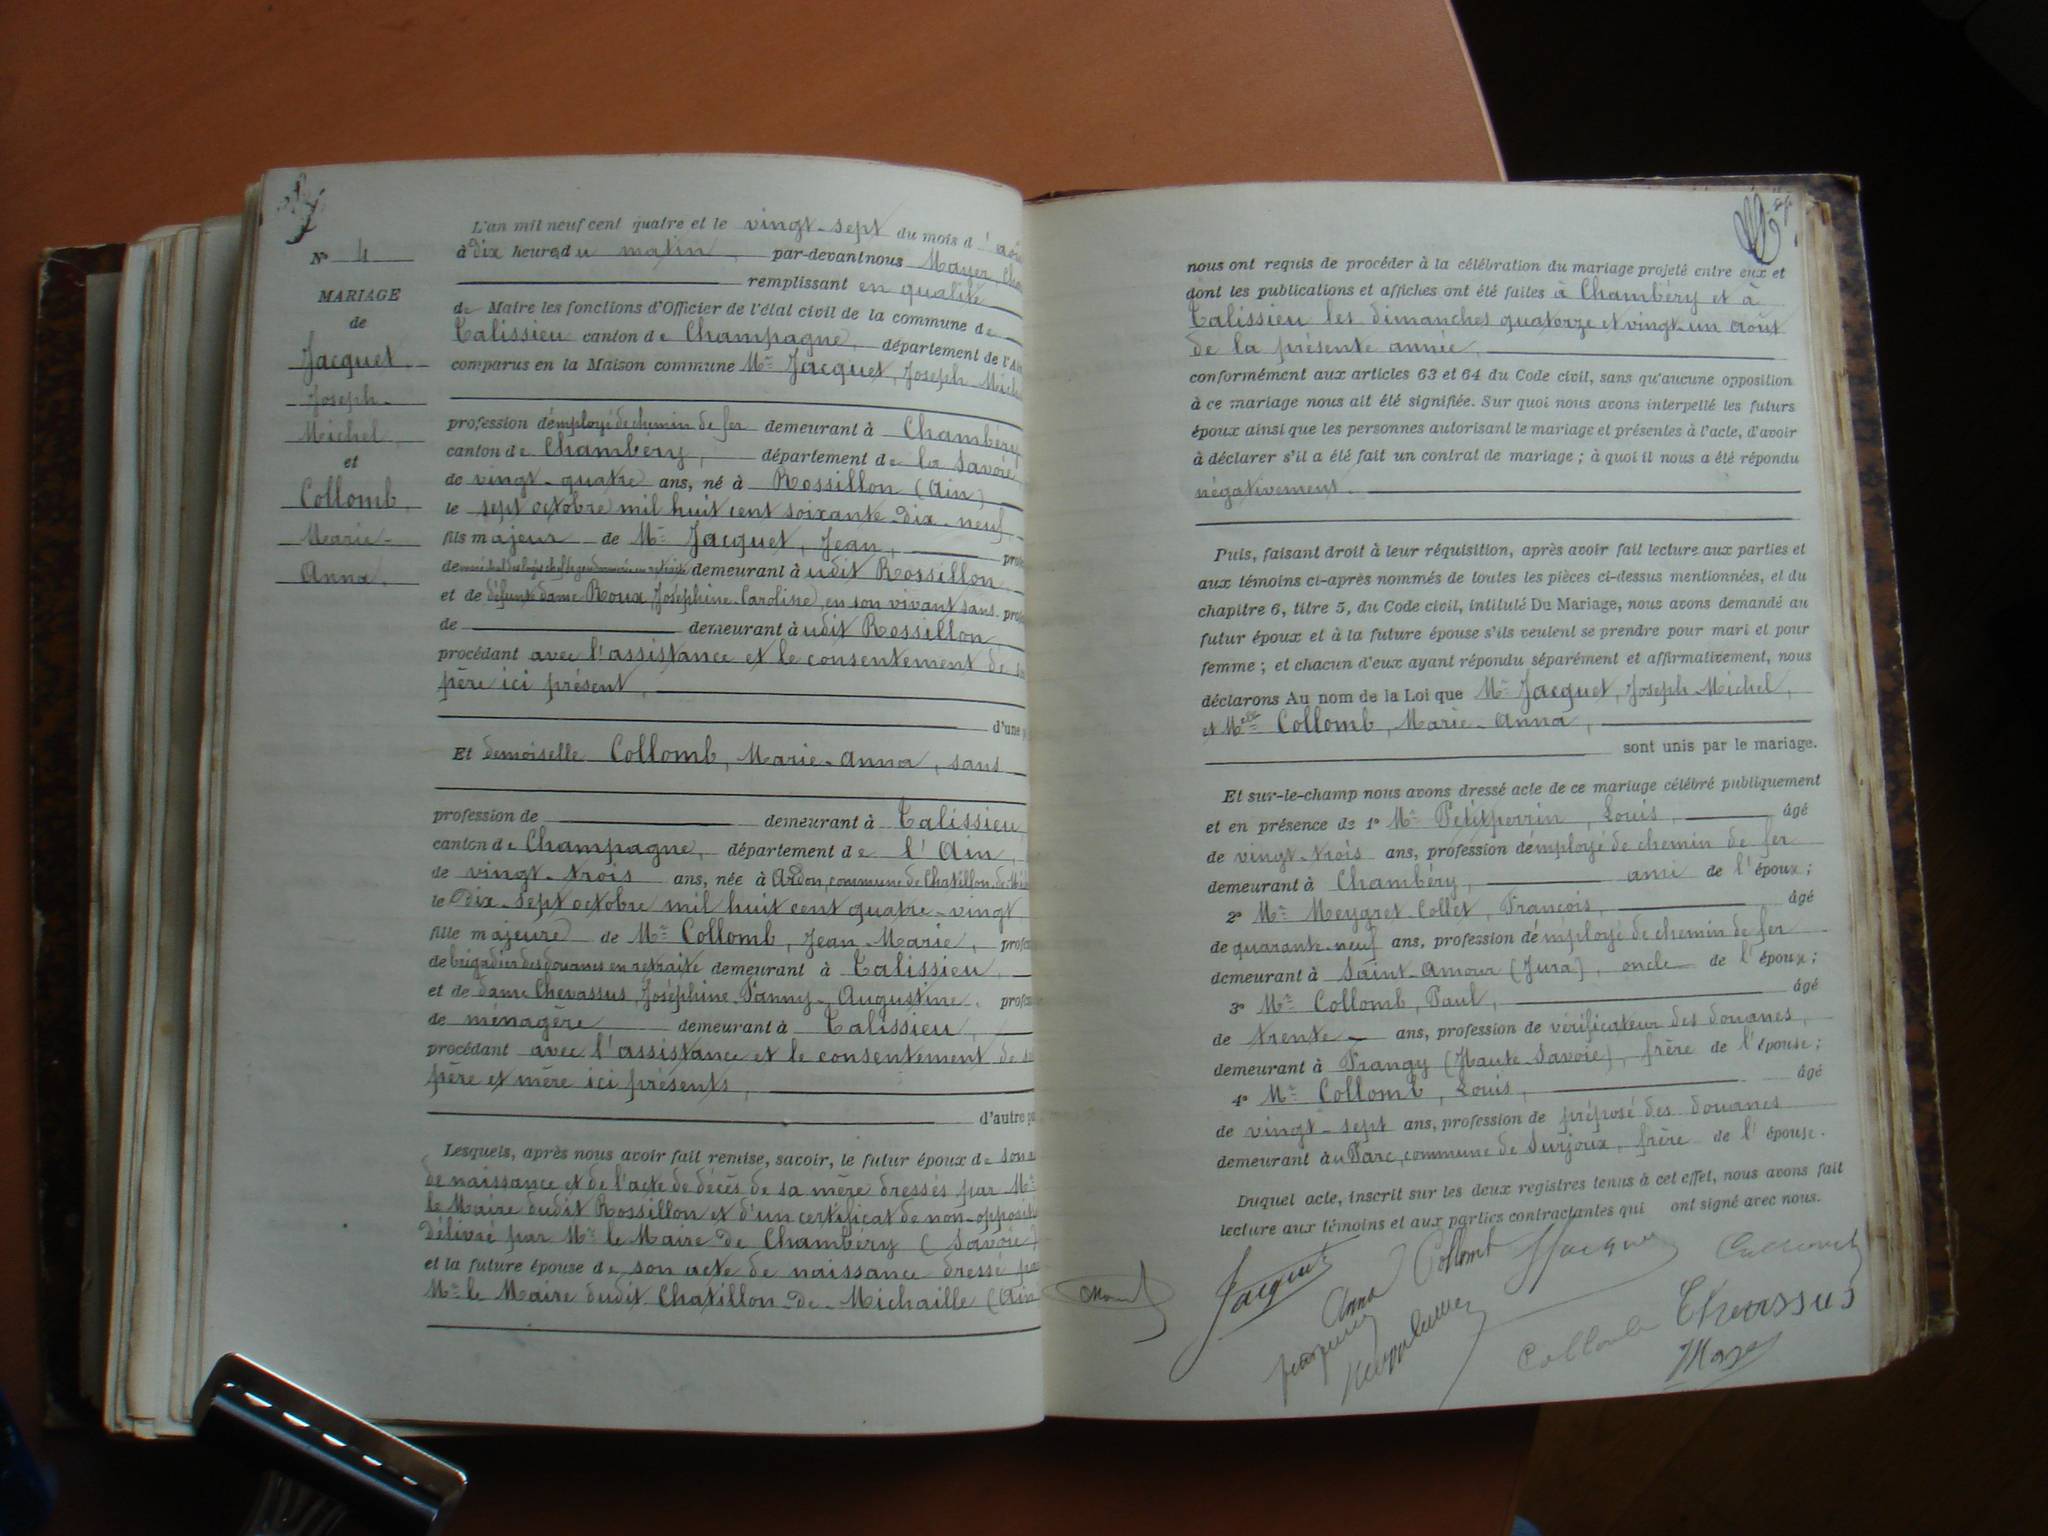 N° 4
MARIAGE
de
Jacquet,
Joseph-
Michel,
et
Collomb,
Marie-
Anna.
L'an mil neuf cent quatre et le vingt-sept du mois d'
à dix heures du matin, par-devant nous Mayer,
remplissant en qualité
de Maire les fonctions d'Officier de l'état civil de la commune de
Talissieu canton de Champagne, département de l'Ain
comparus en la Maison commune Mr Jacquet, Joseph-Michel
profession d'employé de chemin de fer demeurant à Chambéry
canton de Chambéry, département de la Savoie
de vingt-quatre ans, né à Rossillon (Ain)
le sept octobre mil huit cent soixante-dix-neuf
fils majeur de Mr Jacquet, Jean,
de maréchal des logis chef de gendarmerie en retraite demeurant audit Rossillon
et de défunte dame Roux, Joséphine-Caroline, en son vivant sans
de demeurant audit Rossillon
procédant avec l'assistance et le consentement de
père ici présent,
d'une
Et demoiselle Collomb, Marie-Anna, sans
profession de demeurant à Talissieu
canton de Champagne, département de l'Ain,
de vingt-trois ans, née à Ardon, commune de Chatillon-de-
le Dix-sept octobre mil huit cent quatre-vingt
fille majeure de Mr Collomb, Jean-Marie,
de brigadier des douanes en retraite demeurant à Talissieu,
et de dame Chevassus, Joséphine-Fanny-Augustine,
de ménagère demeurant à Talissieu,
procédant avec l'assistance et le consentement de
père et mère ici présents,
d'autre
Lesquels, après nous avoir fait remise, savoir, le futur époux de son
de naissance et de l'acte de décès de sa mère dressés par Mr
le Maire dudit Rossillon et d'un certificat de non-opposition
délivré par Mr le Maire de Chambéry (Savoie)
et la future épouse de son acte de naissance dressé par
Mr le Maire dudit Chatillon-de-Michaille (Ain
nous ont requis de procéder à la célébration du mariage projeté entre eux et
dont les publications et affiches ont été faites à Chambéry et à
Talissieu les dimanches quatorze et vingt-un août
de la présente année,
conformément aux articles 63 et 64 du Code civil, sans qu'aucune opposition
à ce mariage nous ait été signifiée. Sur quoi nous avons interpellé les futurs
époux ainsi que les personnes autorisant le mariage et présentes à l'acte, d'avoir
à déclarer s'il a été fait un contrat de mariage ; à quoi il nous a été répondu
négativement.
Puis, faisant droit à leur réquisition, après avoir fait lecture aux parties et
aux témoins ci-après nommés de toutes les pièces ci-dessus mentionnées, et du
chapitre 6, titre 5, du Code civil, intitulé Du Mariage, nous avons demandé au
futur époux et à la future épouse s'ils veulent se prendre pour mari et pour
femme ; et chacun d'eux ayant répondu séparément et affirmativement, nous
déclarons Au nom de la Loi que Mr Jacquet, Joseph-Michel,
et Melle Collomb, Marie-Anna,
sont unis par le mariage.
Et sur-le-champ nous avons dressé acte de ce mariage célébré publiquement
et en présence de 1° Mr Petitperrin, Louis, âgé
de vingt-trois ans, profession d'employé de chemin de fer
demeurant à Chambéry, ami de l'époux ;
2° Mr Meygret-Collet, François, âgé
de quarante-neuf ans, profession d'employé de chemin de fer
demeurant à Saint-Amour (Jura), oncle de l'époux ;
3° Mr Collomb, Paul, âgé
de trente ans, profession de vérificateur des douanes,
demeurant à Frangy (Haute-Savoie), frère de l'épouse ;
4° Mr Collomb, Louis, âgé
de vingt-sept ans, profession de préposé des douanes
demeurant au Parc, commune de Surjoux, frère de l'épouse.
Duquel acte, inscrit sur les deux registres tenus à cet effet, nous avons fait
lecture aux témoins et aux parties contractantes qui ont signé avec nous.
Jacquet
Anna Collomb
Jacquet
Collomb
Chevassus
Mayer